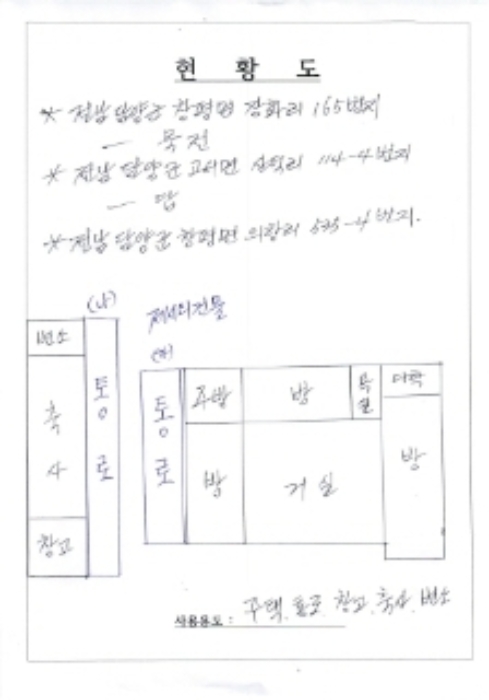 현 황 도
* 전남 담양군 창평면 강화리 165번지
— 목전
* 전남 담양군 고서면 산덕리 114-4번지
— 답
* 전남 담양군 창평면 의항리 535-4번지.
(나)
제시외건물
(가)
변소
축사
창고
통로
통로
주방
방
욕실
다락
방
거실
방
사용용도 : 주택, 통로, 창고, 축사, 변소